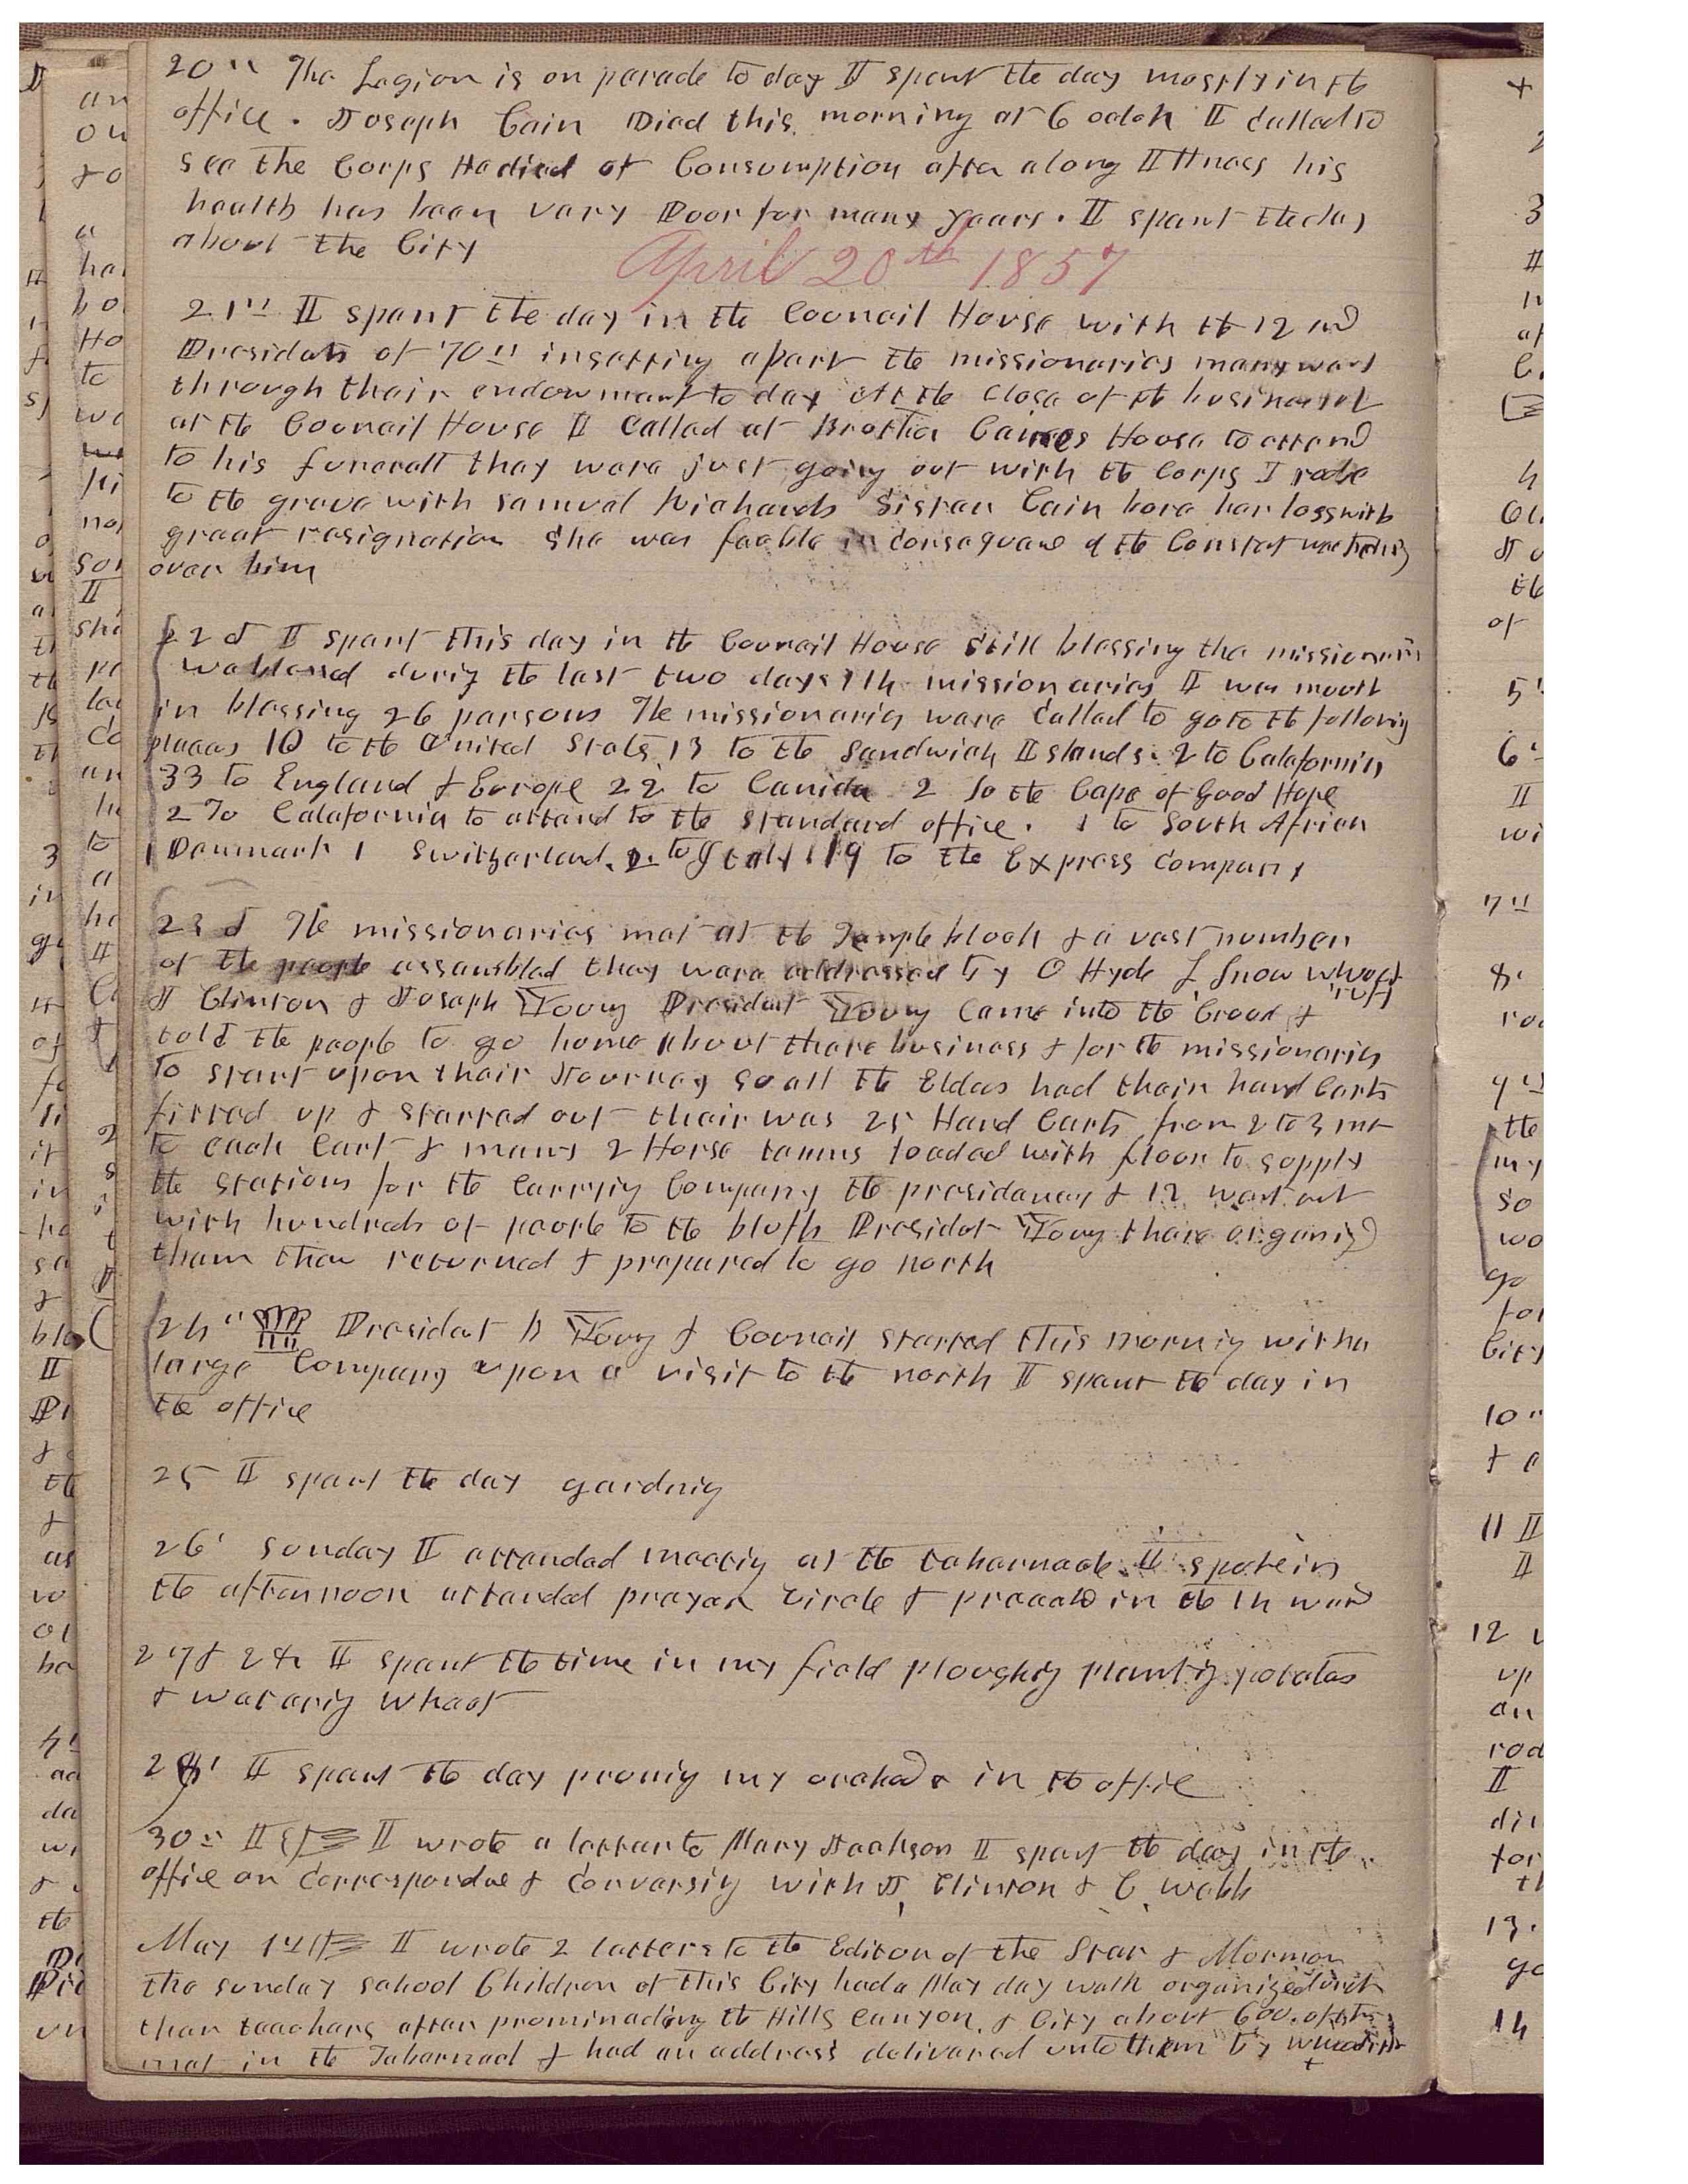 20th The Legion is on parade to day I spent the day mostly in the
office. Joseph Cain Died this morning at 6 oclok I called to
see the Corps He died of Consumption after along Illness his
health has been very Poor for many years. I spent the day
about the City
April 20th 1857
21st I spent the day in the Council House with the 12 and
Presidets of 70th in setting apart the missionaries many went
through their endowment to day At the close of the business
at the Council House I called at Brother Caines House to attend
to his funerall they were just going out with the Corps I rode
to the grave with Samuel Richards Sister Cain bore her loss with
great resignation She was feeble in consequence of the constat watching
over him
22d I spent this day in the Council House still blessing the missionaries
we blessed during the last two days 114 missionaries I was mouth
in blessing 26 persons The missionaries were called to go to the following
places 10 to the United States 13 to the Sandwich Islands. 2 to Calafornia
33 to England & Europe 22 to Canida 2 to the Cape of Good Hope
2 To Calafornia to attend to the standard office. 1 to South Africa
1 Denmark 1 Switzerland. 2 to 19 to the Express Company
23d The missionaries met at the Temple block & a vast number
of the people assembled they were addressed by O Hyde L Snow W Woodruff
J Clinton & Joseph Young President Young came into the Crowd &
told the people to go home about there business & for the missionaries
to start upon their Journey so all the Elders had their hand Carts
fitted up & started out their was 25 Hand Carts from 2 to 3 men
to each Cart & many 2 Horse teams loaded with flour to supply
the stations for the Carrying Company the presidency & 12 went out
with hundreds of people to the bluff Presidet Young there organized
them then returned & prepared to go north
24th President B Young & Council started this morning with a
large Company upon a visit to the north I spent the day in
the office
25 I spent the day gardning
26 Sunday I attended meeting at the tabernacle I spoke in
the afternoon attended prayer Circle & preached in the 14 ward
27 & 28 I spent the time in my field ploughing planting potatoes
& watering wheat
29 I spent the day pruning my orchard & in the office
30th I wrote a letter to Mary Jackson I spent the day in the
office on Correspondence & Conversing with J, Clinton & C, Webb
May 1st I wrote 2 letters to the Editor of the Star & Mormon
the sunday school Children of this City had a May day walk organized with
their teachers after prominading the Hills Canyon. & City about 600. of them
met in the Tabernacl & had an address delivered unto them by W Woodruff
+